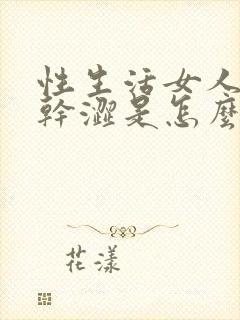 性生活女人
幹澀是怎麼
花漾